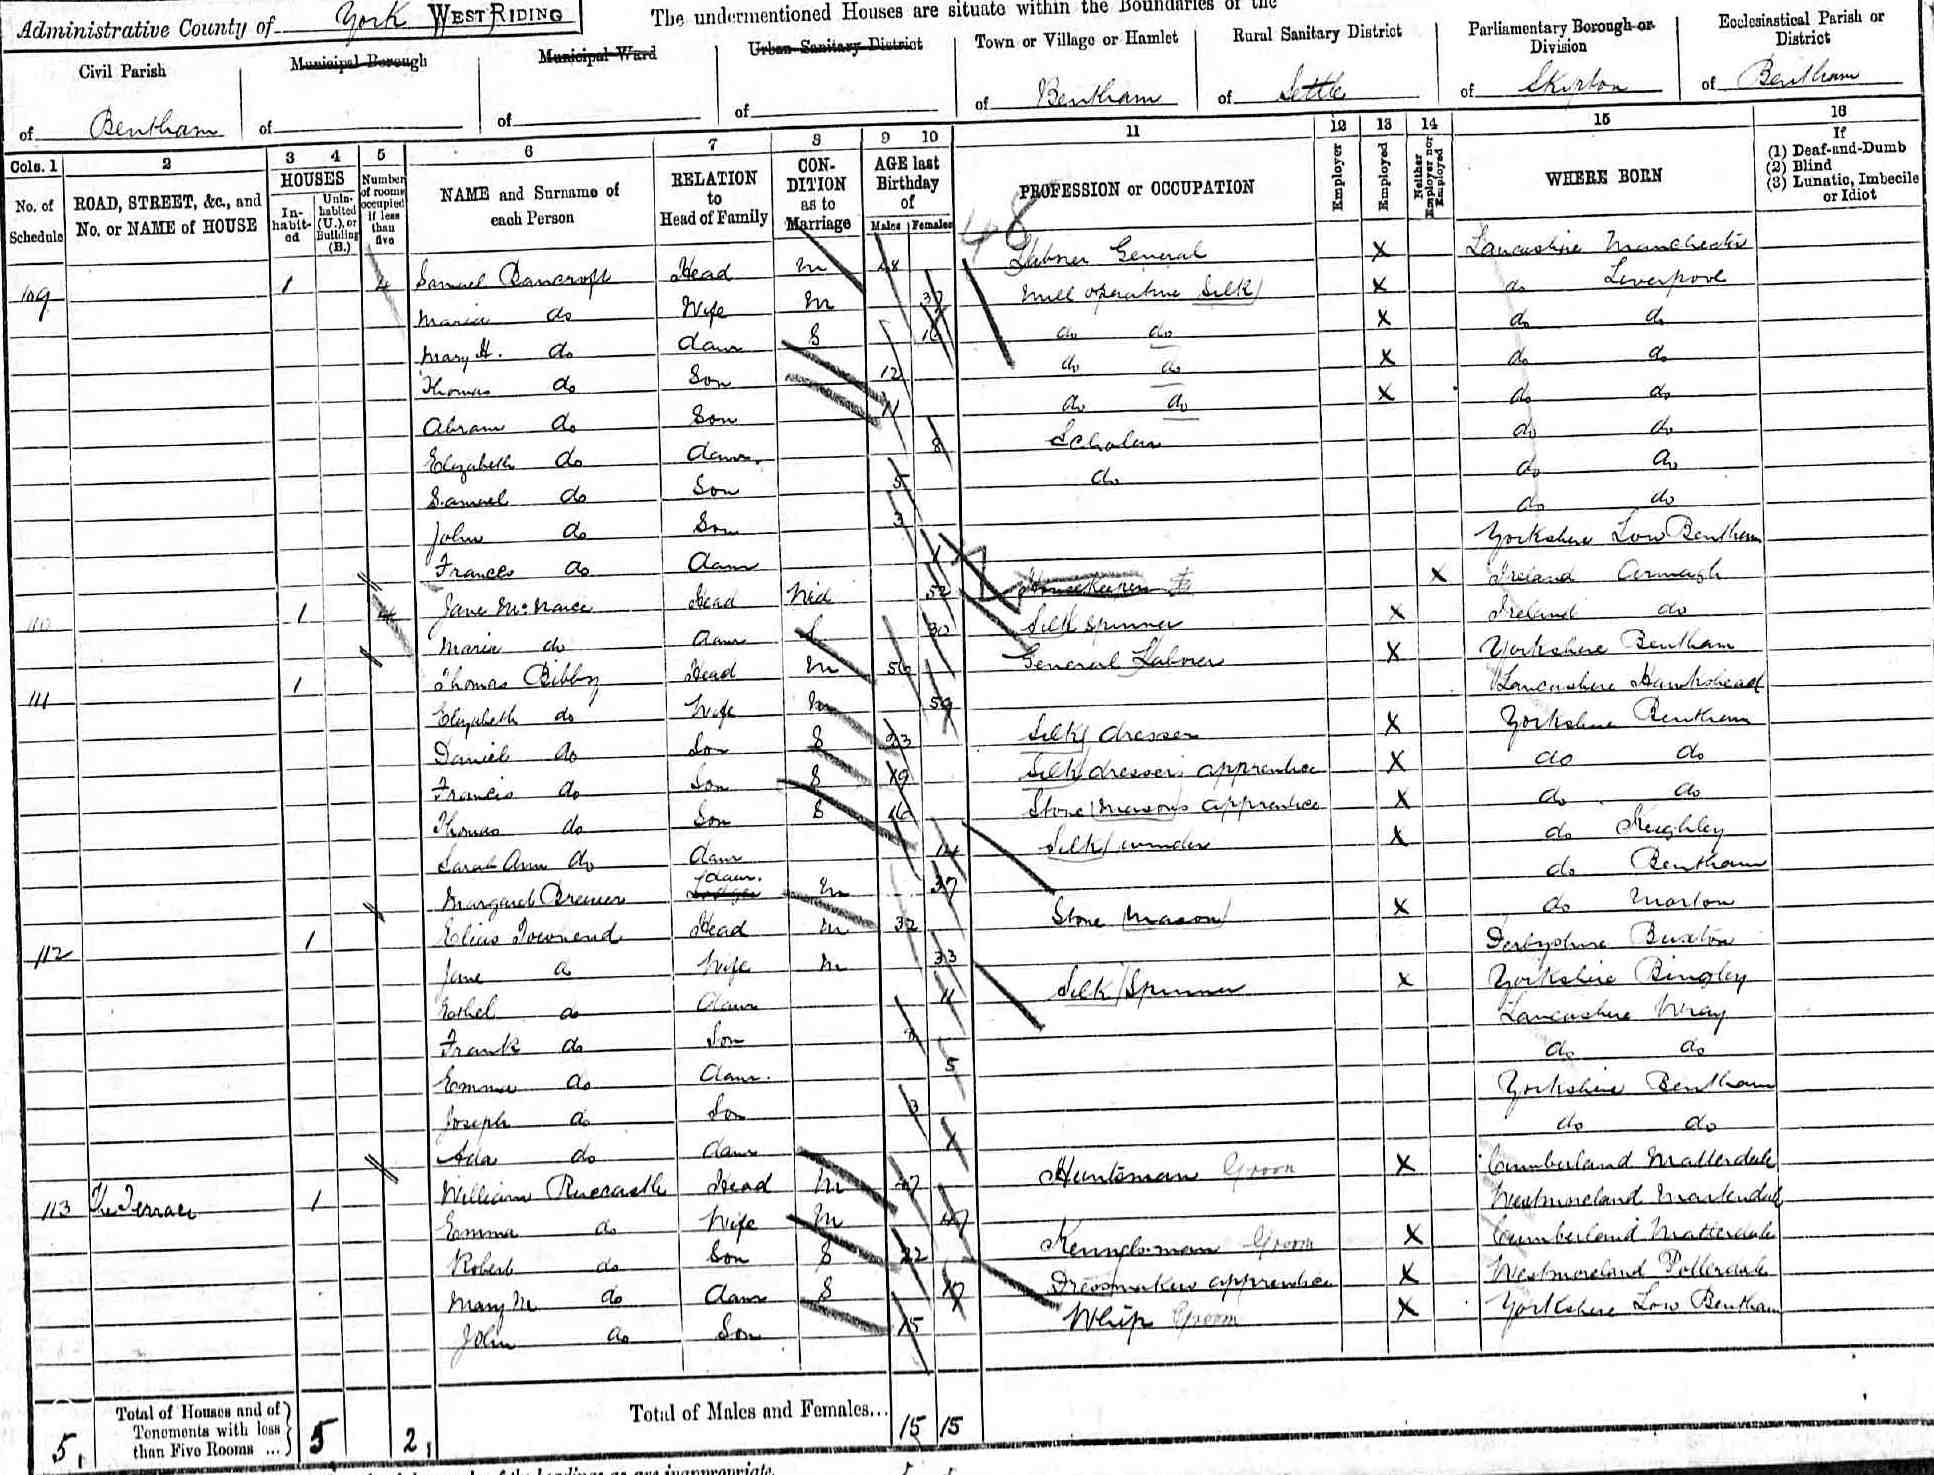 Administrative County of York WEST RIDING The undermentioned Houses are situate within the Boundaries of the
Civil Parish Municipal Borough Municipal Ward Urban Sanitary District Town or Village or Hamlet Rural Sanitary District Parliamentary Borough or Division Ecclesiastical Parish or District
of Bentham of of of of Bentham of Settle of Skipton of Bentham
Cols. 1 2 3 4 5 6 7 8 9 10 11 12 13 14 15 16
No. of Schedule ROAD, STREET, &c., and No. or NAME of HOUSE HOUSES Inhabited Uninhabited (U.), or Building (B.) Number of rooms occupied if less than five NAME and Surname of each Person RELATION to Head of Family CONDITION as to Marriage AGE last Birthday of Males Females PROFESSION or OCCUPATION Employer Employed Neither Employer nor Employed WHERE BORN If (1) Deaf-and-Dumb (2) Blind (3) Lunatic, Imbecile or Idiot
48
109 1 4 Samuel Bancroft Head M 48 Labner General X Lancashire Manchester
Maria do Wife M 37 Mill operative Silk X do Liverpool
Mary H. do daur S 16 do do X do do
Thomas do Son 12 do do X do do
Abram do Son 11 do do X do do
Elizabeth do daur. 8 Scholar do do
Samuel do Son 5 do do do
John do Son 3 do do
Frances do daur 1 Yorkshire Low Bentham
110 1 4 Jane Head Wid 52 Housekeeper X Ireland Armagh
Maria do daur S 30 Silk Spinner X Ireland do
111 1 Thomas Bibby Head M 56 General Labner X Yorkshire Bentham
Elizabeth do Wife M 59 Lancashire Hawkshead
Daniel do Son S 23 Silk dresser X Yorkshire Bentham
Francis do Son S 19 Silk dressers apprentice X do do
Thomas do Son S 16 Stone Masons apprentice X do do
Sarah Ann do daur 14 Silk winder X do Keighley
Margaret Brewer Lodger daur. M 37 do Bentham
112 1 Elias Townend Head M 32 Stone Mason X do Morton
Jane do Wife M 33 Derbyshire Buxton
Ethel do daur 11 Silk Spinner X Yorkshire Bingley
Frank do Son Lancashire Wray
Emma do daur. 5 do do
Joseph do Son 3 Yorkshire Bentham
Ada do daur do do
113 The Terrace 1 William Head M 47 Huntsman Groom X Cumberland Matterdale
Emma do Wife M 47 Westmoreland Martendale
Robert do Son S 22 Kennelman Groom X Cumberland Matterdale
Mary M do daur S 17 Dressmakers apprentice X Westmoreland Patterdale
John do Son 15 Whip Groom X Yorkshire Low Bentham
5. Total of Houses and of Tenements with less than Five Rooms ... 5 2 Total of Males and Females... 15 15
of the headings as are inappropriate.